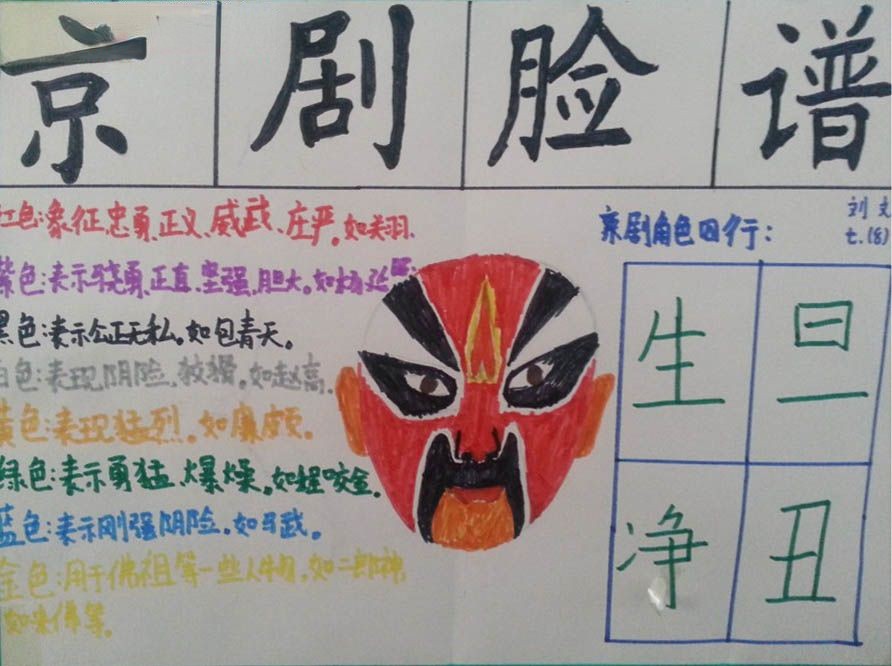 京剧脸谱
红色:象征忠勇、正义、威武、庄严。如关羽.
紫色:表示骁勇、正直、坚强、胆大。如杨延
黑色:表示公正无私。如包青天。
白色:表现阴险、狡猾。如赵高.
黄色:表现猛烈。如廉颇。
绿色:表示勇猛、爆燥。如程咬金.
蓝色:表示刚强阴险。如马武。
金色:用于佛祖等一些人物,如二郎神
如来佛等。
刘文
七.(8)
京剧角色四行:
生 旦
净 丑